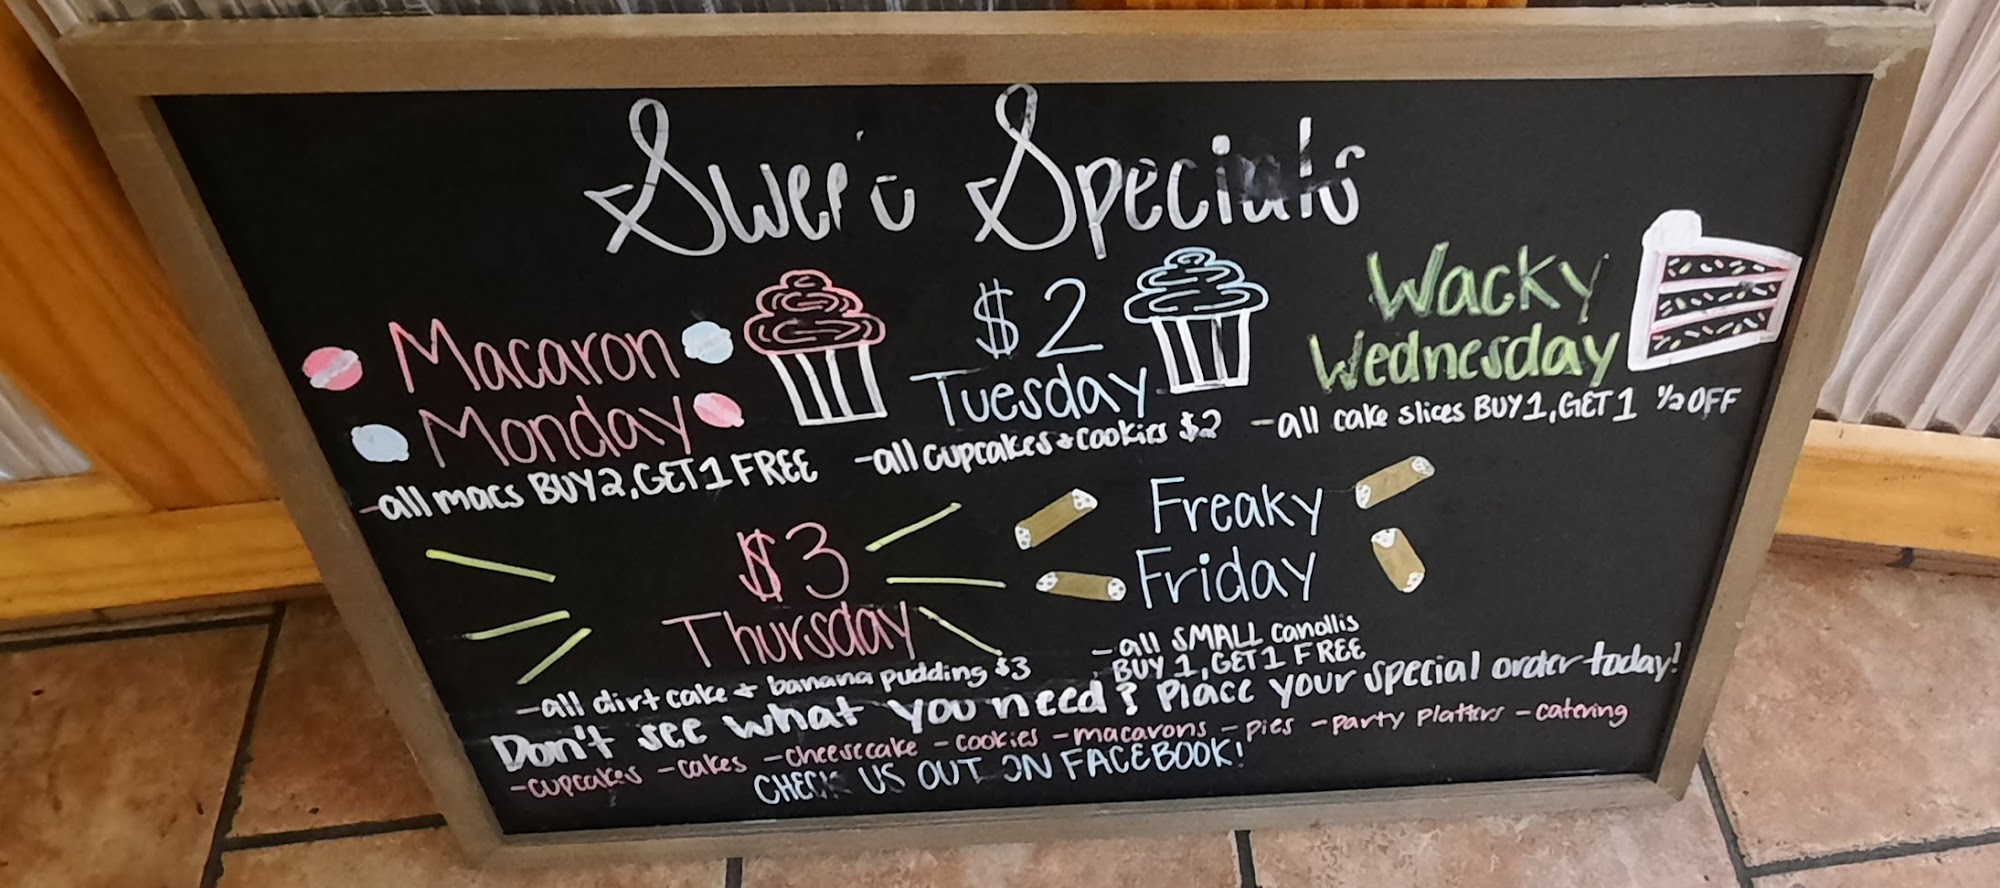 Specials
Macaron
Monday
-all macs BUY 2, GET 1 FREE
$2
Tuesday
-all cupcakes + cookies $2
Wacky
Wednesday
-all cake slices BUY 1, GET 1 1/2 OFF
$3
Thursday
-all dirt cake + banana pudding $3
Freaky
Friday
-all SMALL canollis
BUY 1, GET 1 FREE
Don't see what you need? Place your special order today!
-cupcakes -cakes -cheesecake -cookies -macarons -pies -party platters -catering
CHECK US OUT ON FACEBOOK!